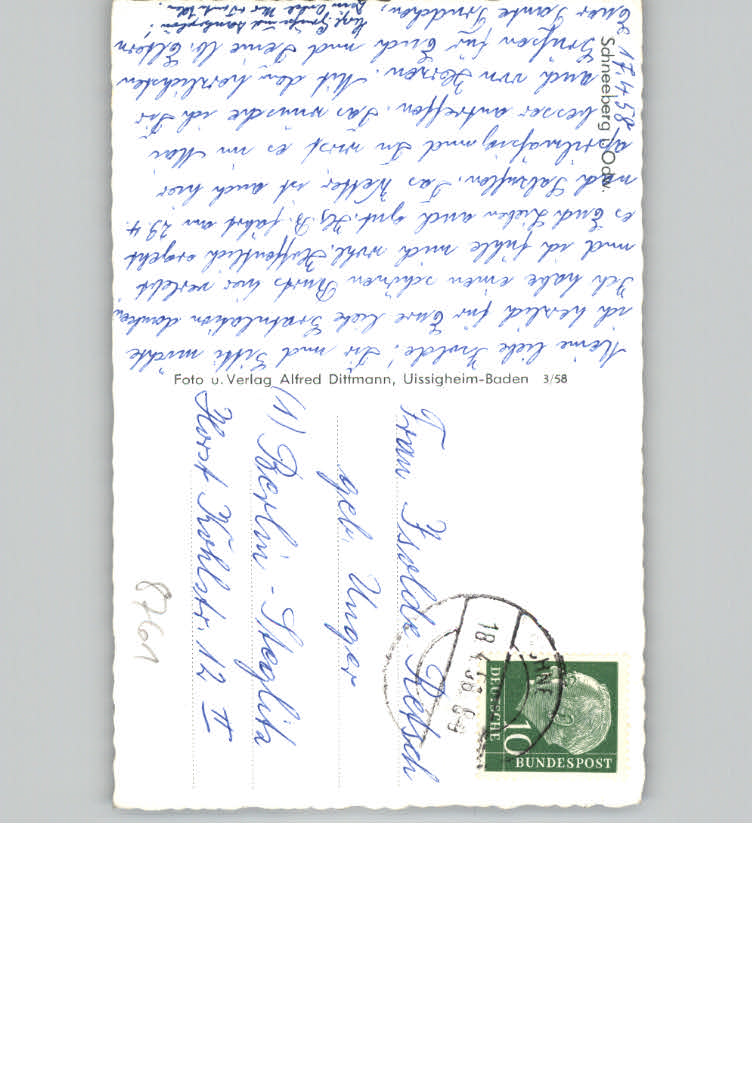 Schneeberg i. Odw.
d. 17.4.58
Meine liebe Isolde! Dir und Gitti möchte
ich herzlich für Eure liebe Gratulation danken.
Ich habe einen schönen Kurs hier verlebt
und ich fühle mich wohl. Hoffentlich ergeht
es Euch Lieben auch gut. B. fährt am 29.4.
nach Salzuflen. Das Wetter ist auch hier
aprilmäßig und Du wirst es im Mai
besser antreffen. Das wünsche ich Dir
auch von Herzen. Mit den herzlichsten
Grüßen für Euch und Deine lb. Eltern
Eure Tante Trudchen.
Foto u. Verlag Alfred Dittmann, Uissigheim-Baden 3/58
Frau Isolde Retsch
geb. Unger
(1) Berlin-Steglitz
Horst Kohlstr. 12 II
18.4.58
DEUTSCHE
BUNDESPOST
10
8761